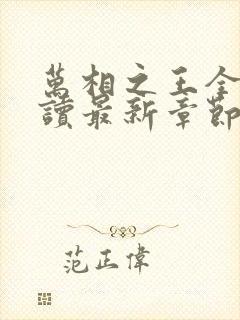 萬相之王全
讀最新章節
范正偉